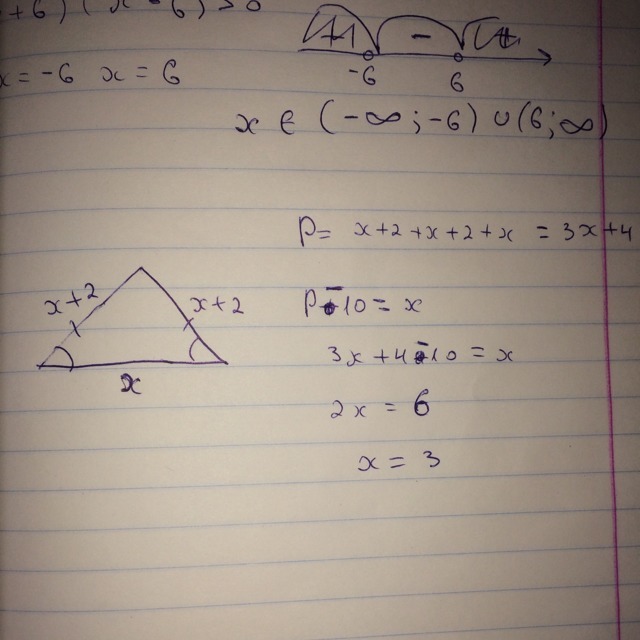 +6) (x - 6) > 0
x = -6 x = 6
+ - +
-6 6
x ∈ (-∞ ; -6) ∪ (6 ; ∞)
P = x+2+x+2+x = 3x+4
x+2 x+2
x
P - 10 = x
3x + 4 - 10 = x
2x = 6
x = 3